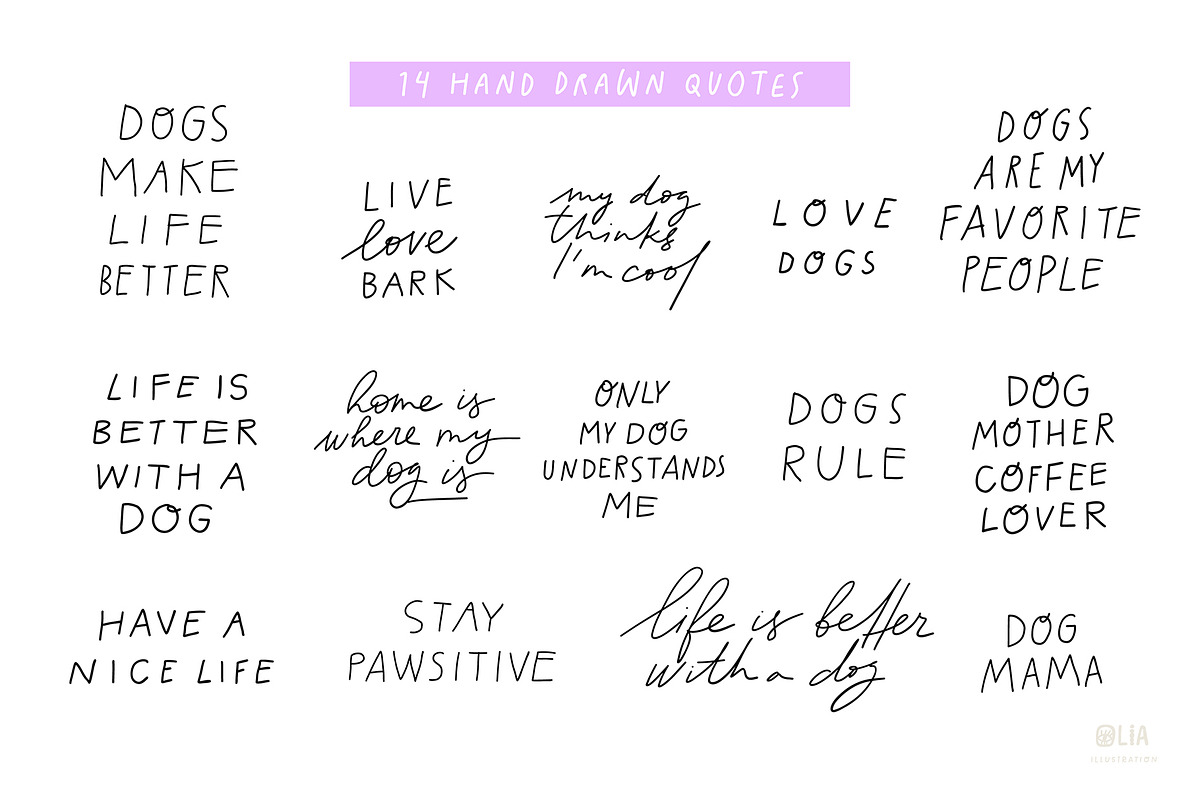 14 HAND DRAWN QUOTES
DOGS
MAKE
LIFE
BETTER
LIVE
love
BARK
my dog
thinks
I'm cool
LOVE
DOGS
DOGS
ARE MY
FAVORITE
PEOPLE
LIFE IS
BETTER
WITH A
DOG
home is
where my
dog is
ONLY
MY DOG
UNDERSTANDS
ME
DOGS
RULE
DOG
MOTHER
COFFEE
LOVER
HAVE A
NICE LIFE
STAY
PAWSITIVE
life is better
with a dog
DOG
MAMA
OLIA
ILLUSTRATION